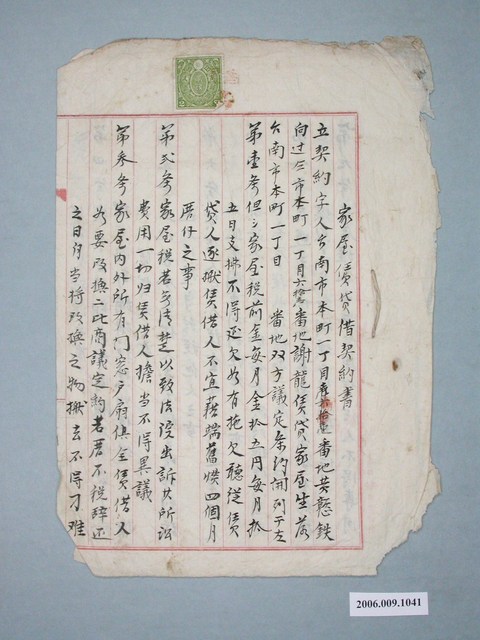 家屋賃貸借契約書
立契約字人台南市本町一丁目番地黃憨鉄
向过仝市本町一丁目六拾番地謝龍賃貸家屋生落
台南市本町一丁目 番地双方議定条约開列于左
第壹条但シ家屋税前金每月金拾五円每月拾
五日支拂不得延欠如有拖欠聽從賃
貸人逐搬賃借人不宜藉端舊惯四個月
厝仔之事
第弍条家屋税若不清楚以致法院出訴其所訟
費用一切归賃借人擔当不得異議
第叁条家屋内外所有门窓户扇俱全賃借人
如要改換二比商議定約若厝不税辞还
之日自当将改換之物搬去不得刁难
2006.009.1041